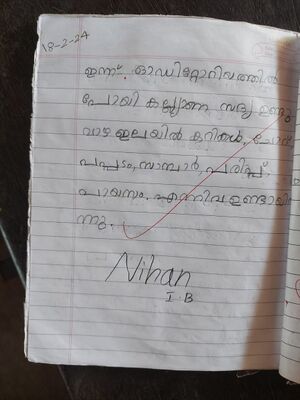 18-2-24
ഇന്ന് ഓഡിറ്റോറിയത്തിൽ
പോയി കല്ല്യാണ സദ്യ ഉണ്ടു
വാഴ ഇലയിൽ കറികൾ, ചോറ്
പപ്പടം, സാമ്പാർ, പരിപ്പ്,
പായസം. എന്നിവ ഉണ്ടായി
ന്നു.
Nihan
I.B